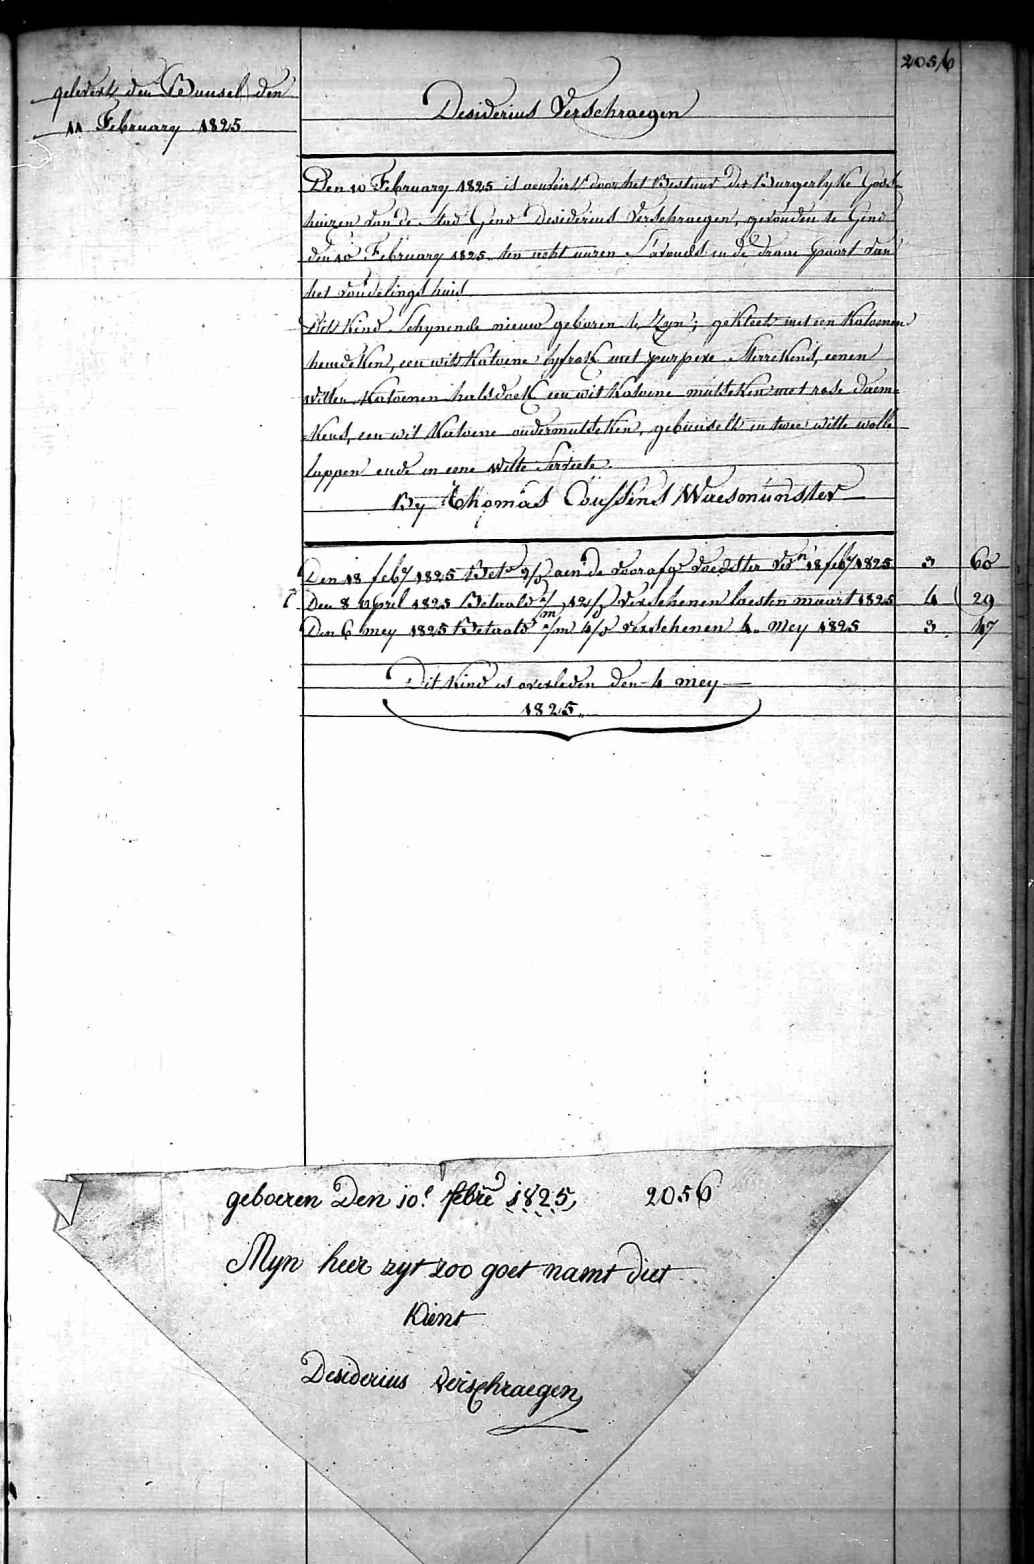 2056
gelevert den Bunsel den
11 February 1825
Desiderius Verschraegen
Den 10 February 1825 is aenveirt door het Bestuur der Burgerlyke Gods-
huizen van de stad Gend Desiderius Verschraegen, gevonden te Gend
den 10 February 1825 ten acht uuren S'avonds in de draae paort van
het vondelings huis
Dits Kind Schynende nieuw geboren te Zyn; gekleet met een Katoenen
hemdeken, een wits Katoene lyfrok met peurpere Sterrekens, eenen
Witten Katoenen halsdoek een wit Katoene mutseken met rose
een wit Katoene ondermutseken, gebunselt in twee witte wolle
lappen ende in eene Witte Serviete.
By Thomas Coussens Waesmunster
Den 18 feby 1825 Bet. aen de voorafge 18 feby 1825 3 60
Den 8 April 1825 Betaald verschenen laesten maart 1825 4 29
Den 6 mey 1825 Betaald verschenen 4 mey 1825 3 47
Dit kind is overleden den 4 mey
1825.
geboeren Den 10e febre 1825, 2056
Myn heer zyt zoo goet namt diet
Kient
Desiderius verschraegen